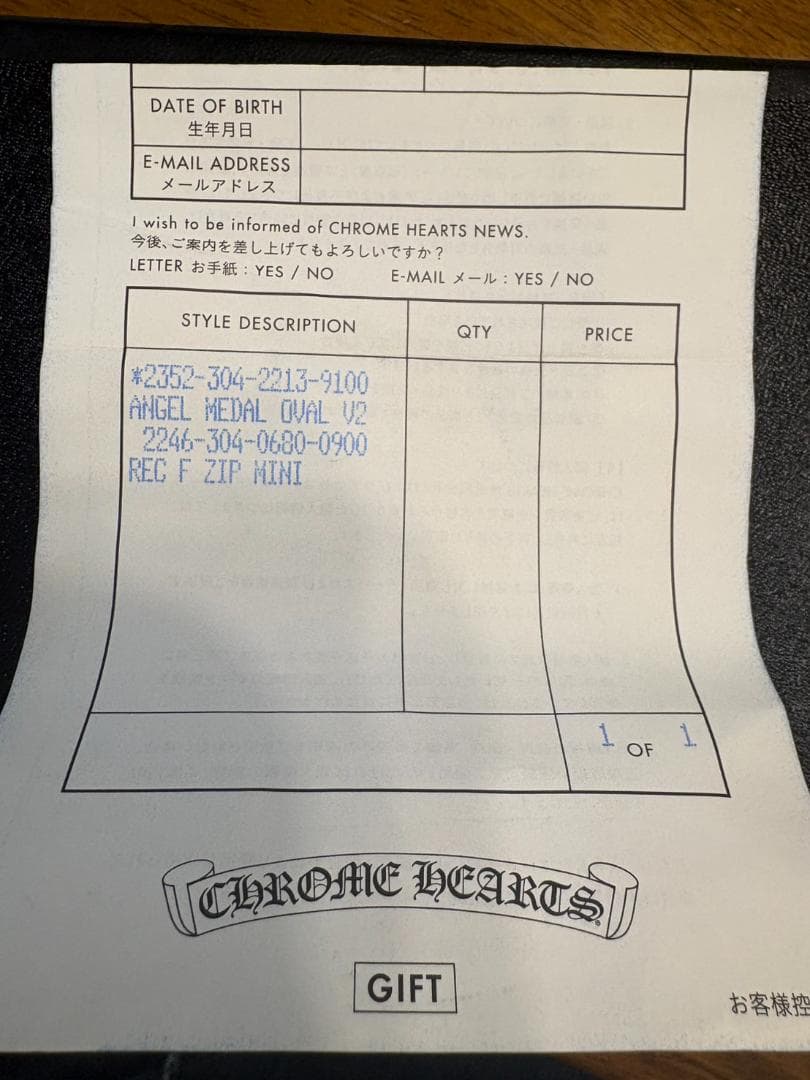 DATE OF BIRTH
生年月日
E-MAIL ADDRESS
メールアドレス
I wish to be informed of CHROME HEARTS NEWS.
今後、ご案内を差し上げてもよろしいですか?
LETTER お手紙 : YES / NO E-MAIL メール : YES / NO
STYLE DESCRIPTION QTY PRICE
*2352-304-2213-9100
ANGEL MEDAL OVAL V2
2246-304-0680-0900
REC F ZIP MINI
1 OF 1
CHROME HEARTS
GIFT
お客様控